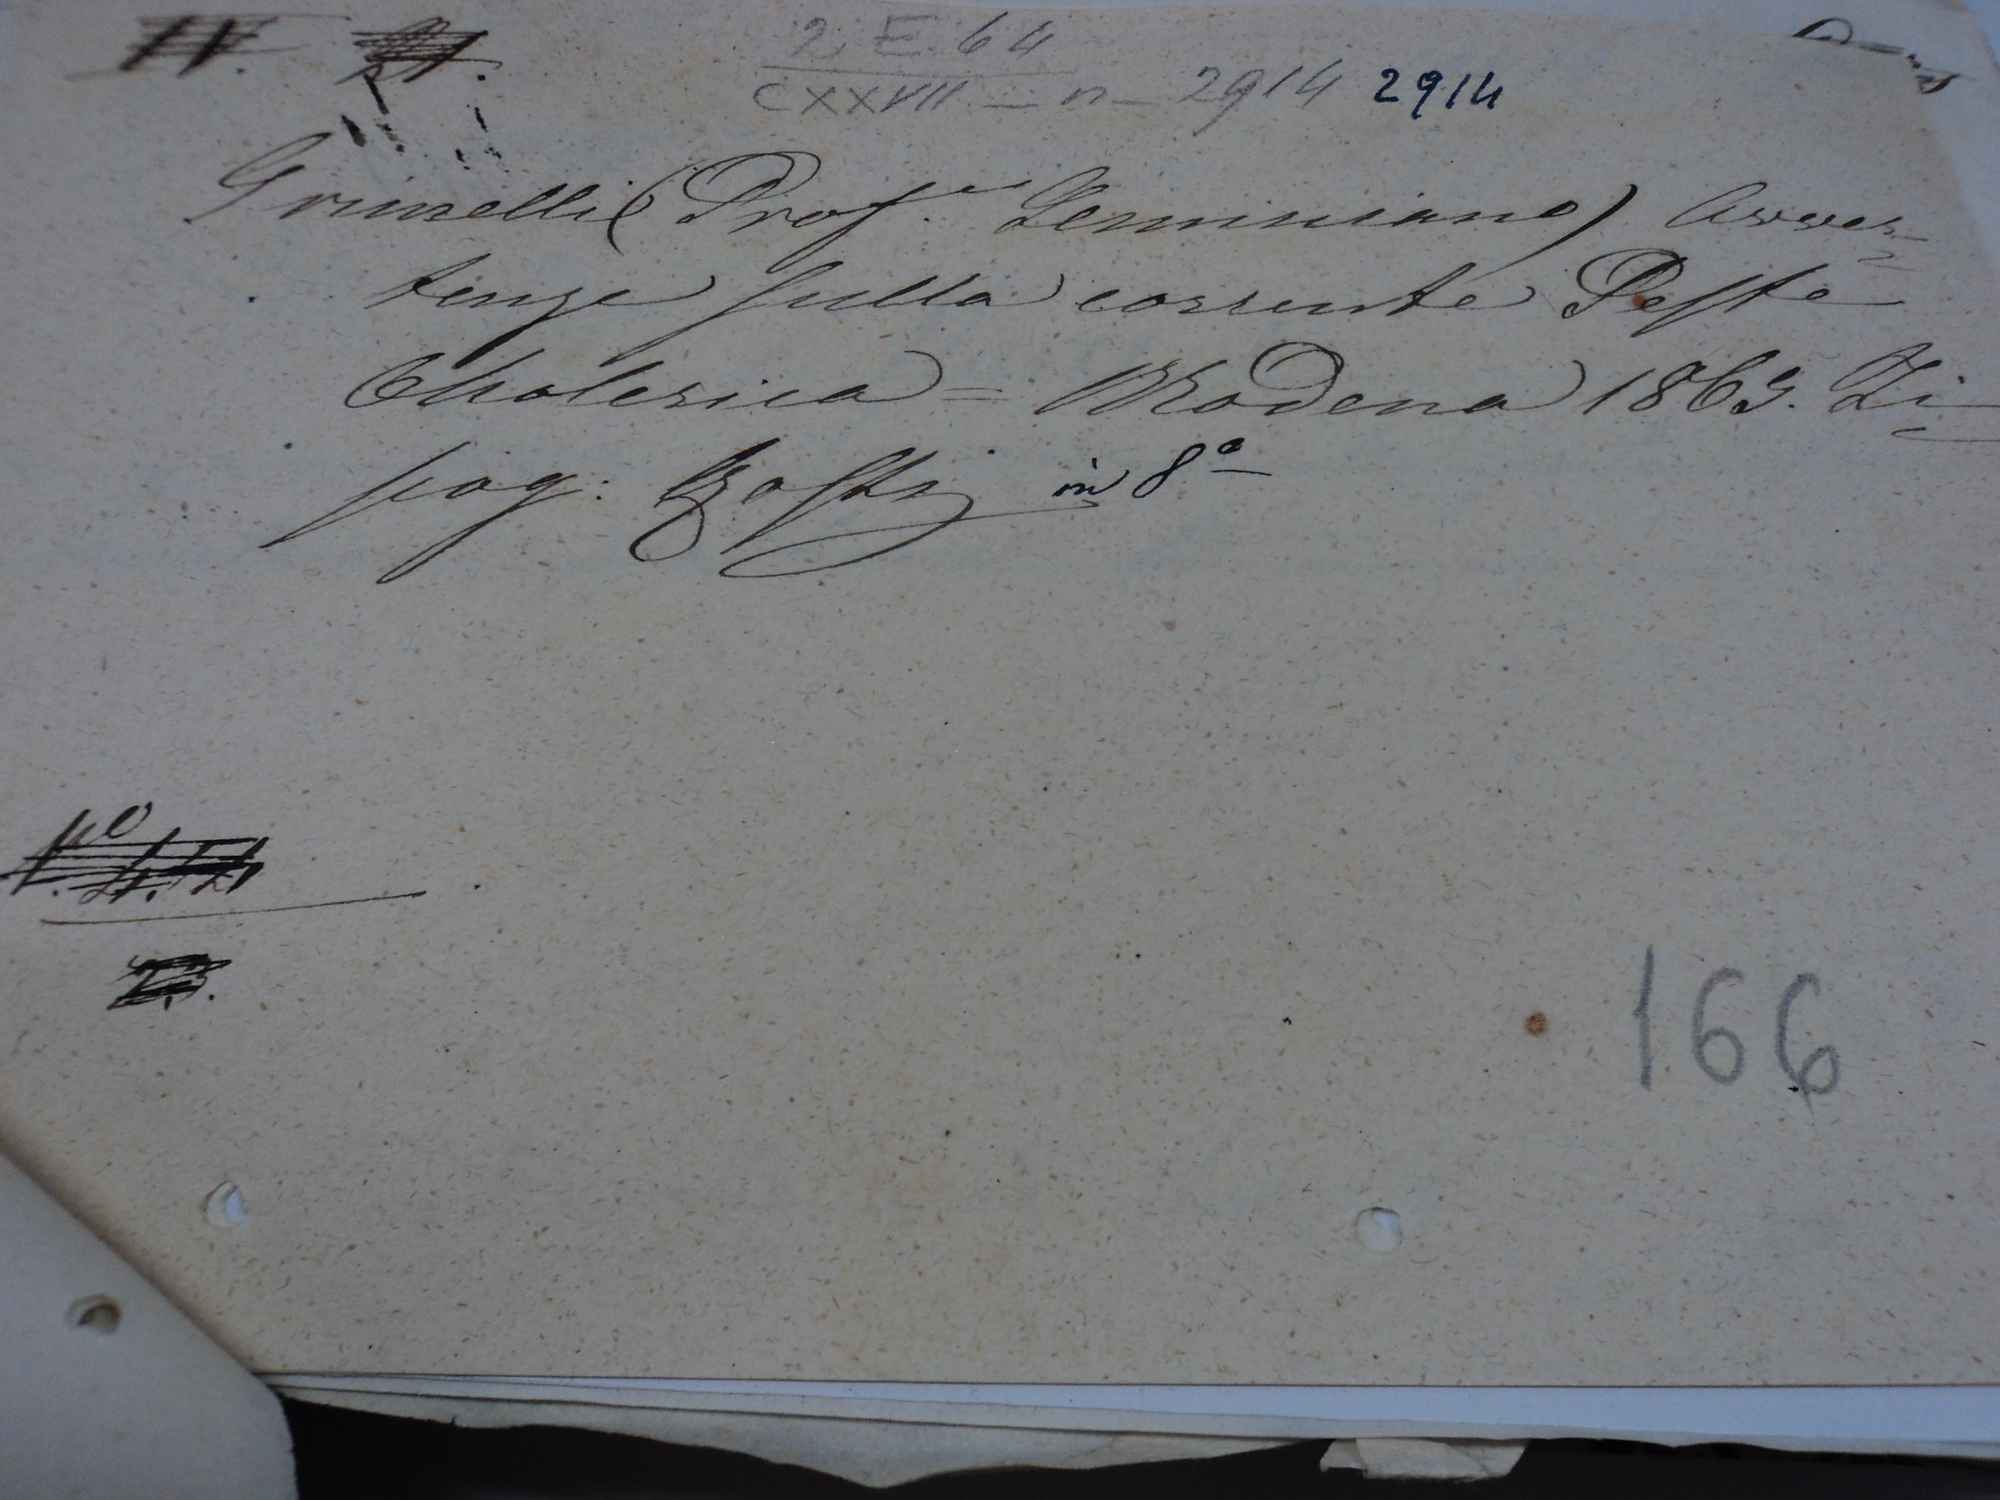 2 E 64
CXXVII - n - 2914 2914
Grimelli (Prof.re Geminiano) Avver-
tenze sulla corrente Peste
Cholerica = Modena 1865. Ti-
pog:
in 8°
166